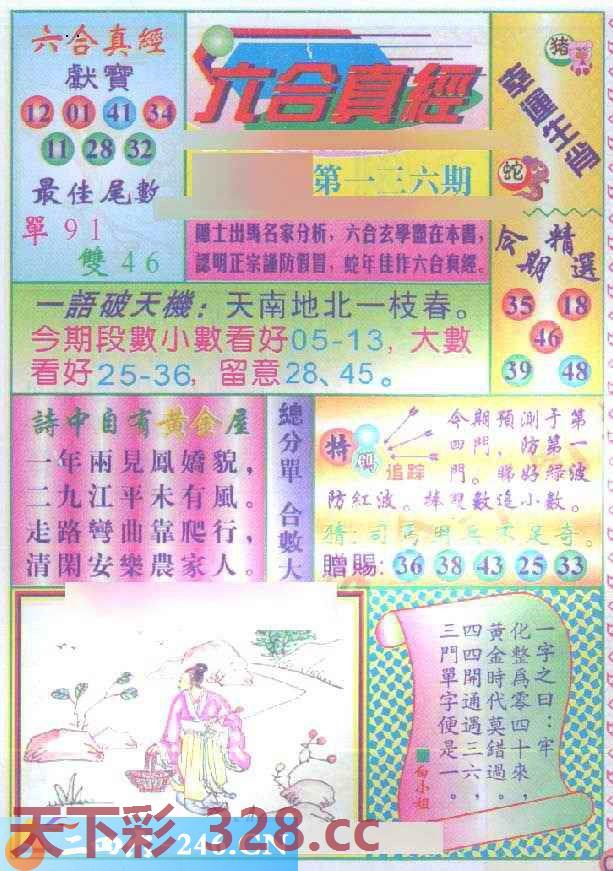 六合真經
獻寶
12 01 41 34
11 28 32
最佳尾數
單 91
雙 46
六合真經
第一三六期
隱士出馬名家分析，六合玄學盡在本書，
認明正宗謹防假冒，蛇年佳作六合真經。
猪
蛇
今期精選
35 18
46
39 48
一語破天機：天南地北一枝春。
今期段數小數看好05-13，大數
看好25-36，留意28、45。
詩中自有黃金屋
一年兩見鳳嬌貌，
二九江平未有風。
走路彎曲靠爬行，
清閑安樂農家人。
總分單 合數大
特碼
追踪
今期預測于第
四門，防第一
門。睇好綠波
防紅波。捧雙數追小數。
贈賜：36 38 43 25 33
一字之曰：牢
化整為零四十來，
黃金時代莫錯過。
四四開通遇三六，
三門單字便是一。
白小姐
天下彩 328.cc
246.CN